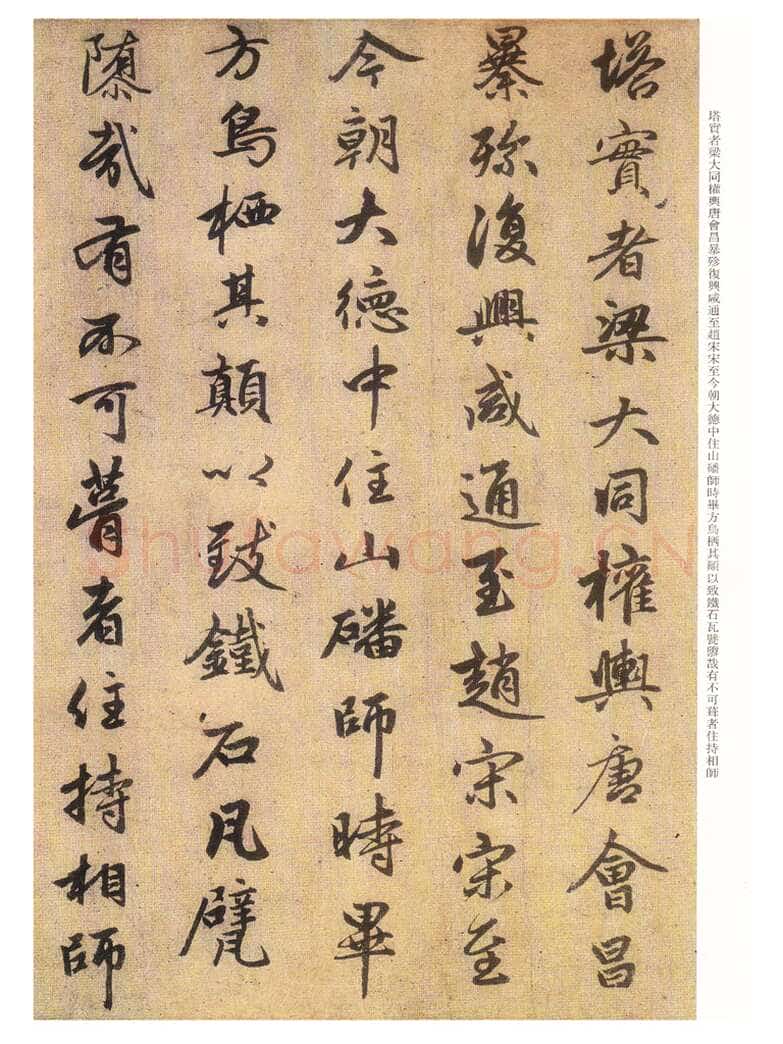 塔實者梁大同權輿唐會昌暴殄復興咸通至趙宋宋至今朝大德中住山磻師時畢方鳥栖其顛以致鐵石瓦甓隳哉有不可葺者住持相師
塔實者梁大同權輿唐會昌
暴殄復興咸通至趙宋宋至
今朝大德中住山磻師時畢
方鳥栖其顛以致鐵石瓦甓
隳哉有不可葺者住持相師
shufawang.CN